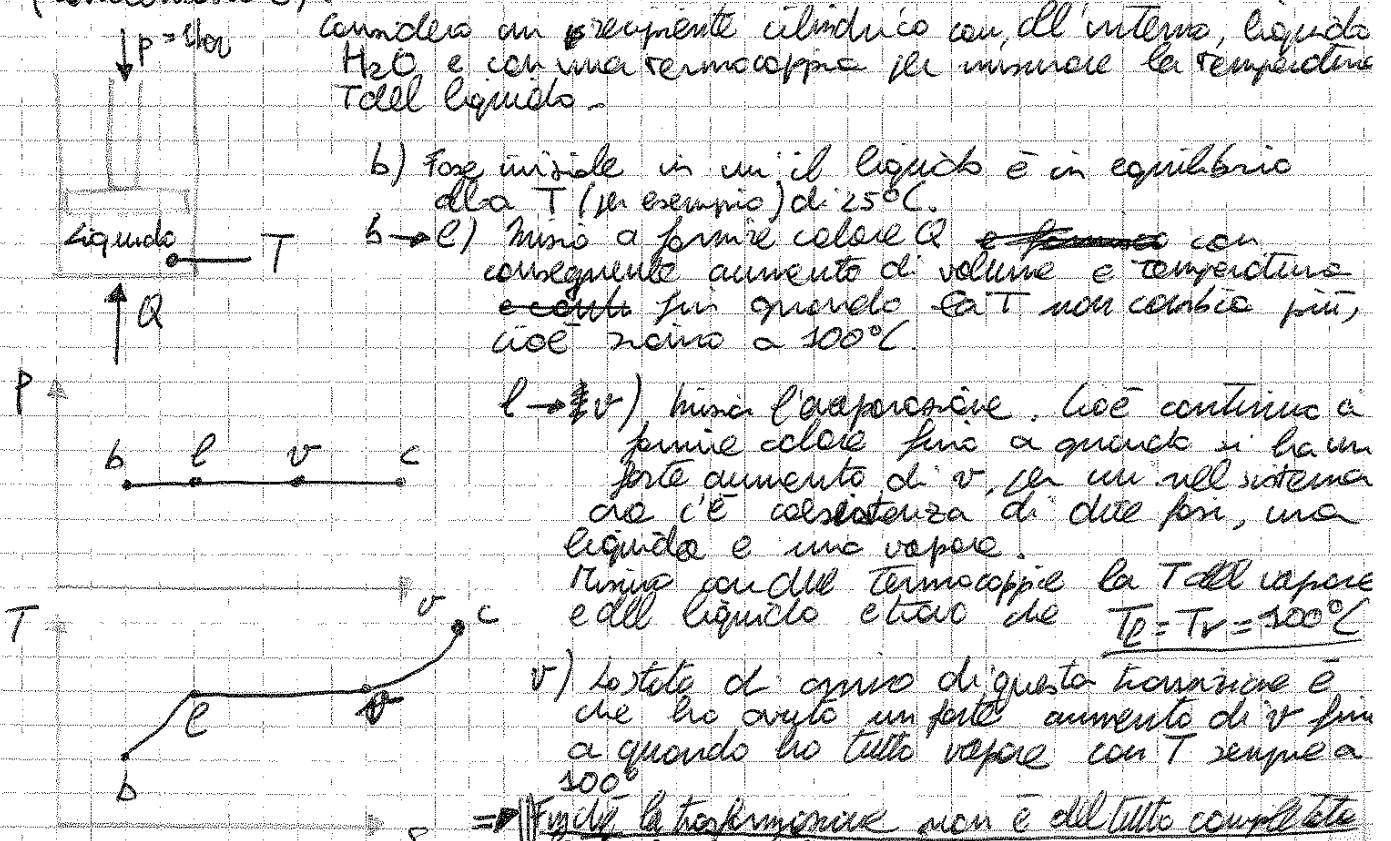 p = 1bar
Considero un recipiente cilindrico con, all'interno, liquido
H2O e con una termocoppia per misurare la temperatura
T del liquido.
b) Fase iniziale in cui il liquido è in equilibrio
alla T (per esempio) di 25°C.
Liquido
T
b → l) Inizio a fornire calore Q con
conseguente aumento di volume e temperatura
fin quando la T non cambia più,
cioè vicino a 100°C.
Q
P
l → v) Inizia l'evaporazione. Cioè continuo a
fornire calore fino a quando si ha un
forte aumento di v, per cui nel sistema
ora c'è coesistenza di due fasi, una
liquida e una vapore.
b l v c
Misuro con due termocoppie la T del vapore
e del liquido e trovo che Tl = Tv = 100°C
v
T
c
v) Lo stato di arrivo di questa transizione è
che ho avuto un forte aumento di v fin
a quando ho tutto vapore con T sempre a
100°
l v
b
=> Finché la trasformazione non è del tutto completata